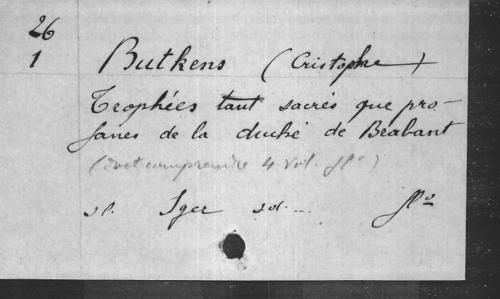 26
1 Butkens (Cristophe)
Trophées tant sacrés que pro-
fanes de la duché de Brabant
(doit comprendre 4 vol. flo)
sl. Sger sd... flo